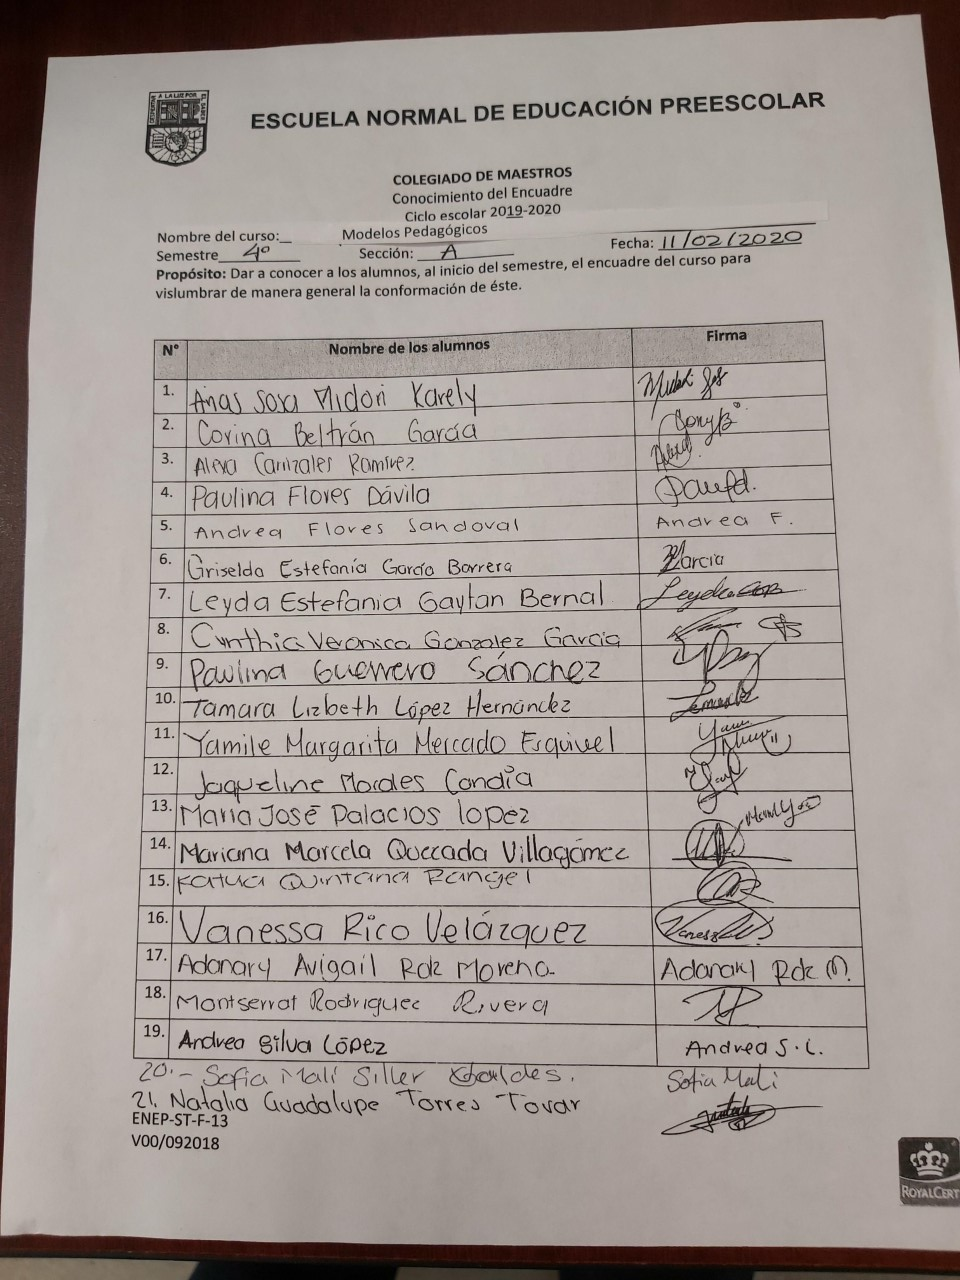 ESCUELA NORMAL DE EDUCACIÓN PREESCOLAR
COLEGIADO DE MAESTROS
Conocimiento del Encuadre
Ciclo escolar 2019-2020
Nombre del curso: Modelos Pedagógicos
Semestre 4° Sección: A Fecha: 11/02/2020
Propósito: Dar a conocer a los alumnos, al inicio del semestre, el encuadre del curso para
vislumbrar de manera general la conformación de éste.
N° Nombre de los alumnos Firma
1. Arias Sosa Midori Karely
2. Corina Beltrán García
3. Alexa Canizales Ramirez
4. Paulina Flores Dávila
5. Andrea Flores Sandoval Andrea F.
6. Griselda Estefanía García Barrera
7. Leyda Estefania Gaytan Bernal
8. Cynthia Veronica Gonzalez Garcia
9. Paulina Guerrero Sánchez
10. Tamara Lizbeth López Hernández
11. Yamile Margarita Mercado Esquivel
12. Jaqueline Morales Candia
13. Maria José Palacios lopez
14. Mariana Marcela Quezada Villagómez
15. Katya Quintana Rangel
16. Vanessa Rico Velázquez
17. Adanary Avigail Rdz Moreno. Adanary Rdz M.
18. Montserrat Rodriguez Rivera
19. Andrea Silva López Andrea S.L.
20.- Sofia Malí Siller Sofia Mali
21. Natalia Guadalupe Torres Tovar
ENEP-ST-F-13
V00/092018
ROYALCERT